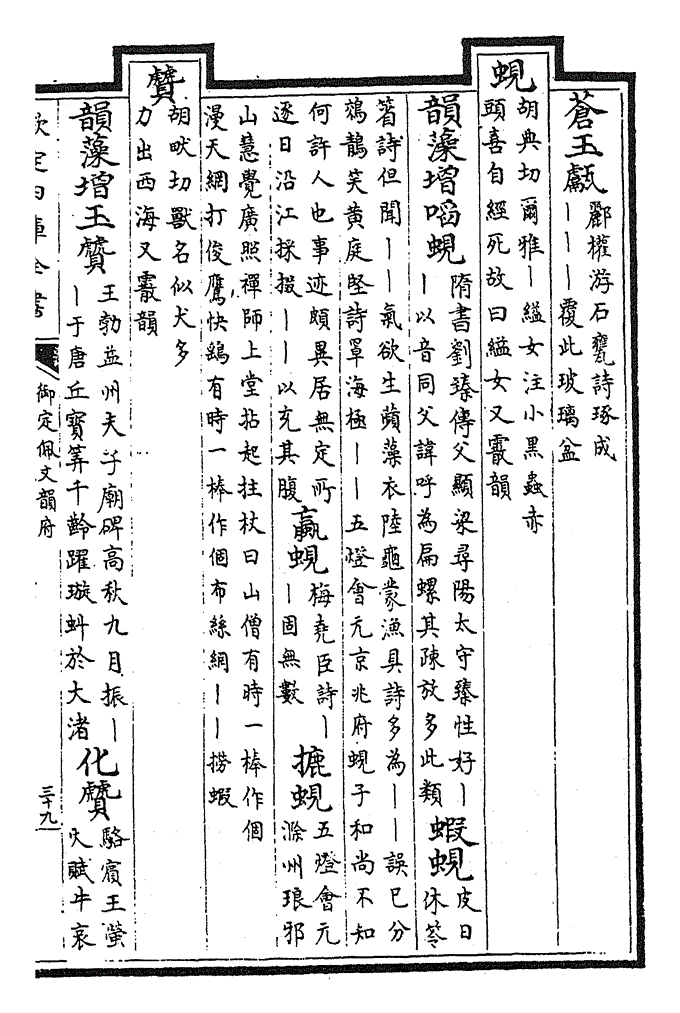 蒼玉甗酈權游石甕詩琢成
｜｜｜覆此玻璃盆
蜆
胡典切爾雅｜縊女注小黑蟲赤
頭喜自經死故曰縊女又霰韻
韻藻增啗蜆隋書劉臻傳父顯梁尋陽太守臻性好｜
｜以音同父諱呼為扁螺其疎放多此類蝦蜆皮日
休答
箵詩但聞｜｜氣欲生蘋藻衣陸龜蒙漁具詩多為｜｜誤已分
鵁鶄笑黄庭堅詩罩海極｜｜五燈會元京兆府蜆子和尚不知
何許人也事迹頗異居無定所
逐日沿江採掇｜｜以充其腹蠃蜆梅堯臣詩｜
｜固無數摝蜆五燈會元
滁州琅邪
山慧覺廣照禪師上堂拈起拄杖曰山僧有時一棒作個
漫天網打俊鷹快鷂有時一棒作個布絲網｜｜撈蝦
贙
胡吠切獸名似犬多
力出西海又霰韻
韻藻增玉贙王勃益州夫子廟碑高秋九月振｜
｜于唐丘寳筭千齡躍璇蚪於大渚化贙駱賓王螢
火賦牛哀
欽定四庫全書
御定佩文韻府
三十九